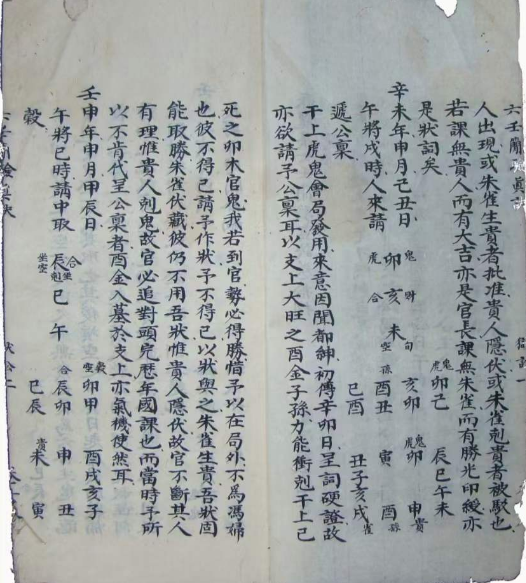 六壬
人出現或朱雀生貴者批准貴人隱伏或朱雀剋貴者被駁也
若課無貴人而有大吉亦是官長課無朱雀而有勝光印綬亦
是狀詞矣
辛未年申月己丑日
午將戌時人來請
遞公稟
鬼虎 卯
財合 亥
未
鬼虎 卯己
亥卯
旬空 孫 酉丑
己酉
辰巳午未
鬼虎 卯 申貴
寅 酉孫
丑子亥戌雀
干上虎鬼會局發用來意因聞都紳初傳辛卯日呈詞硬證故
亦欲請予公稟耳以支上大旺之酉金子孫力能衝剋干上已
死之卯木官鬼我若到官勢必得勝惜予以在局外不為馮婦
也彼不得已請予作狀予不得已以狀與之朱雀生貴吾狀固
能取勝朱雀伏藏彼仍不用吾狀惟貴人隱伏故官不斷其人
有理惟貴人剋鬼故官必追對頭完歷年國課也而當時予所
以不肯代呈公稟者酉金入墓於支上亦氣機使然耳
壬申年申月甲辰日
午將巳時請中取
穀
合 辰 坐空 坐剋
巳
午
空 卯甲
合 辰卯
巳辰
酉戌亥子
申 丑
貴 未 寅